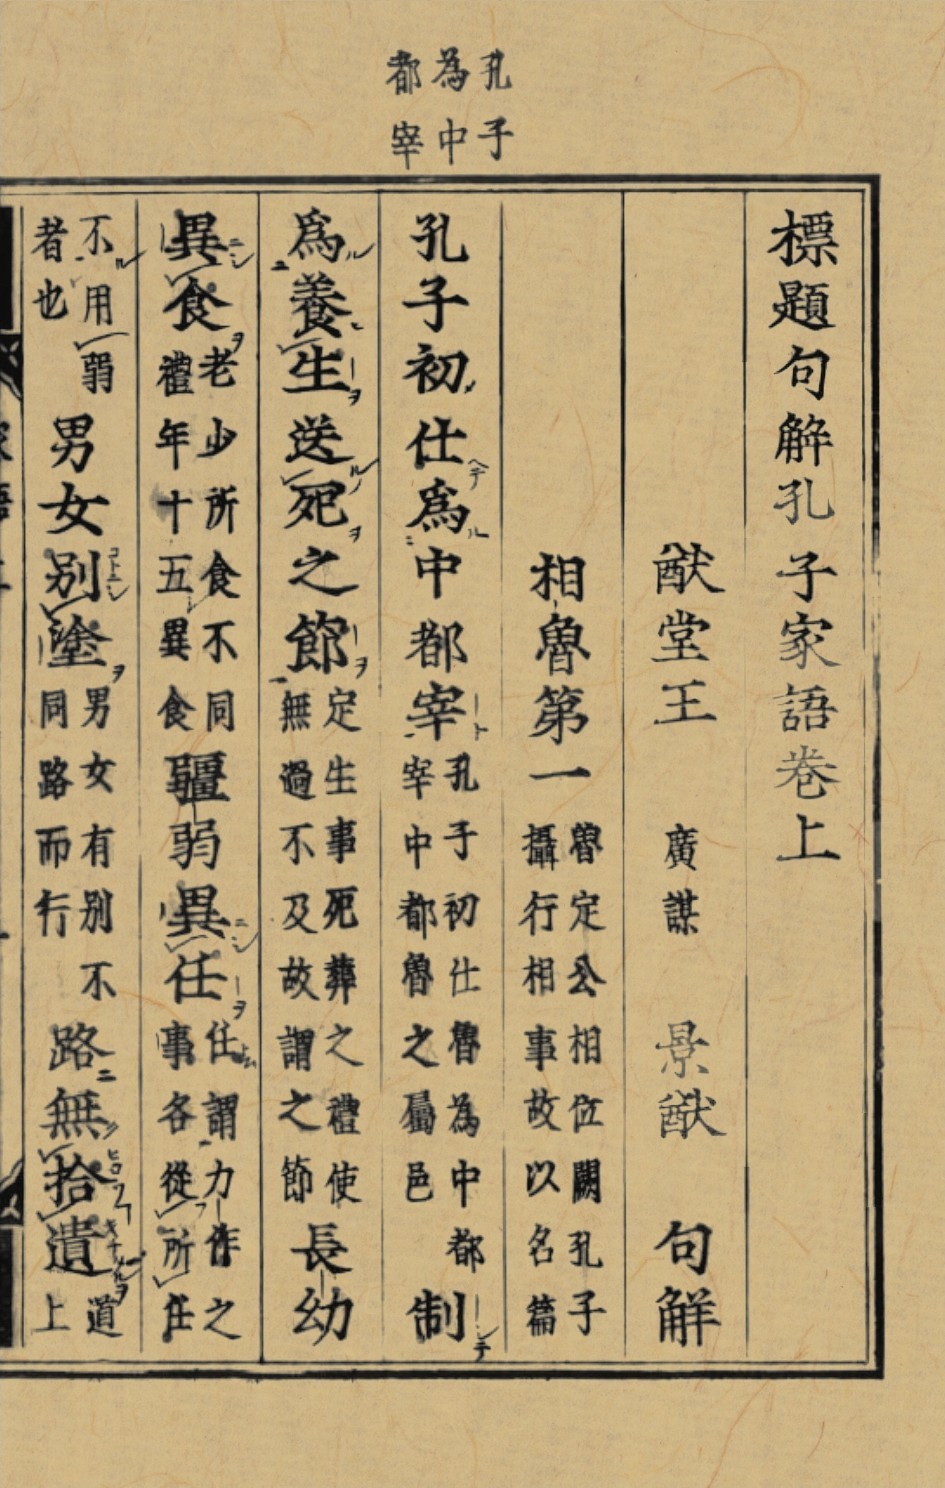 孔子
為中
都宰
標題句解孔子家語卷上
猷堂王 廣謀 景猷 句解
相魯第一 魯定公相位闕孔子攝行相事故以名篇
孔子初仕爲中都宰 孔子初仕魯為中都宰中都魯之屬邑 制
爲養生送死之節 定生事死葬之禮使無過不及故謂之節 長幼
異食 老少所食不同禮年十五異食 疆弱異任 任謂力作之事各從所任
不用弱者也 男女別塗 男女有別不同路而行 路無拾遺 道上